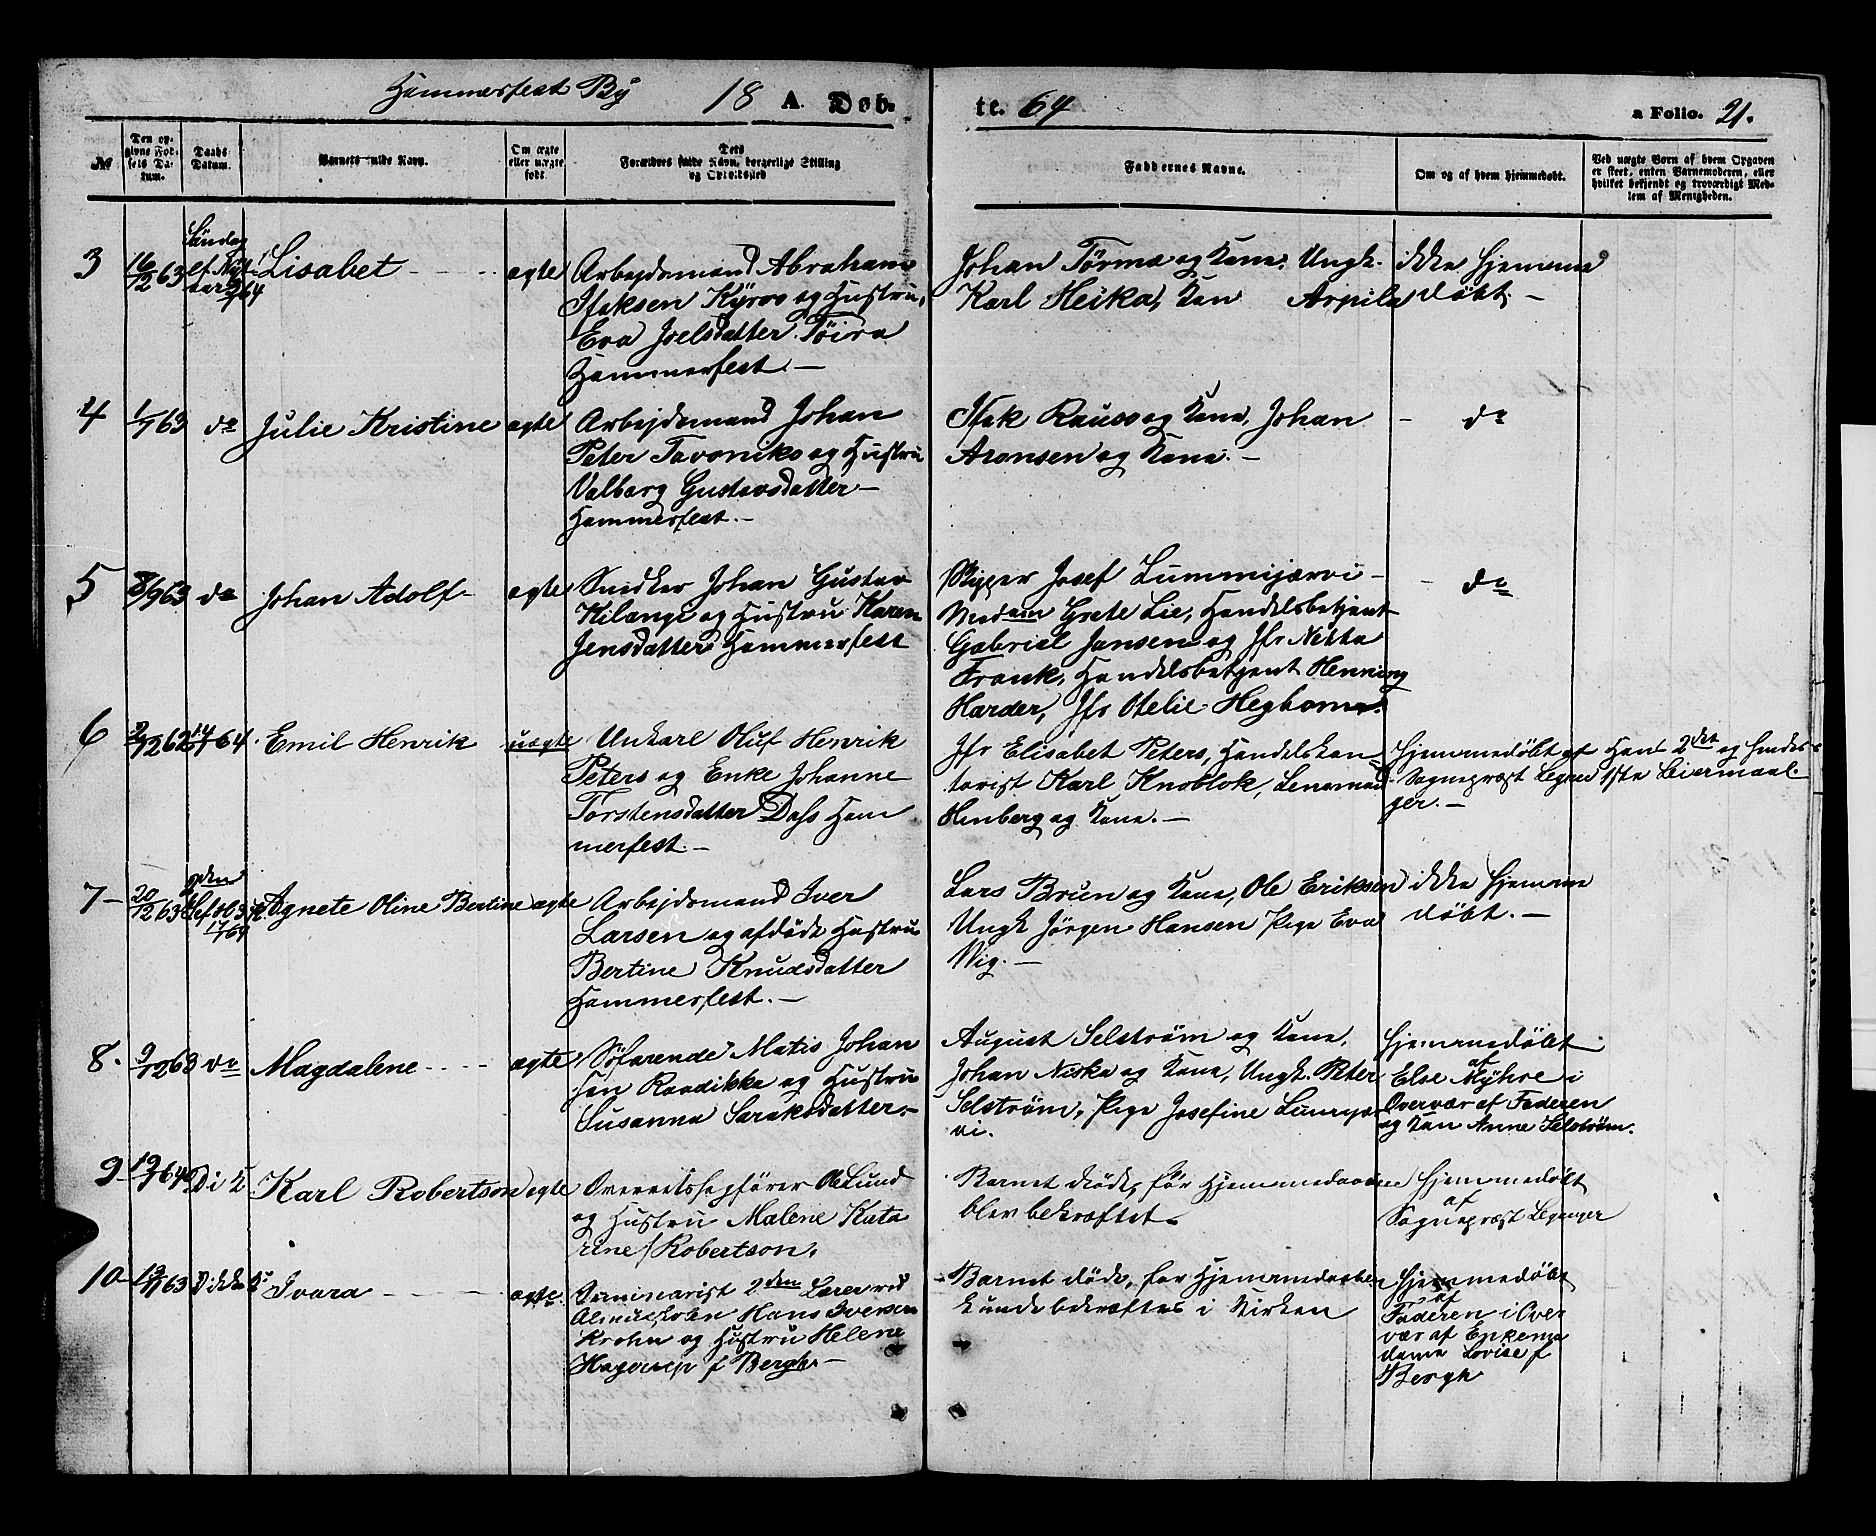 Hammerfest By 18 A. Døb-
te. 64 a Folio. 21.
No
Den opgivne Fødsels Datum.
Daabs Datum.
Barnets fulde Navn.
Om ægte eller uægte født.
Dets Forældres fulde Navn, borgerlige Stilling og Opholdssted
Faddernes Navne.
Om og af hvem hjemmedøbt.
Ved uægte Børn af hvem Opgaven er skeet, enten Barnemoderen, eller hvilket bekjendt og troværdigt Medlem af Menigheden.
3 16/12 63 Søndag ef. Nytaar 3/1 64 Lisabet ægte
Arbejdsmand Abraham
Isaksen Kyrø og Hustru,
Eva Joelsdatter Töira
Hammerfest. —
Johan Törmæ og Kone, Ungk.
Karl Heika, Kon Arpila
ikke hjemme
døbt. —
4 1/7 63 do Julie Kristine ægte
Arbejdsmand Johan
Peter Tavoniko og Hustru
Valborg Gustavsdatter —
Hammerfest. —
Isak Rauso og Kone, Johan
Aronsen og Kone. —
do
5 8/9 63 do Johan Adolf ægte
Snedker Johan Gustav
Kilangi og Hustru Karen
Jensdatter Hammerfest
Skipper Josef Lummijærvi —
Madam Grete Lie, Handelsbetjent
Gabriel Jansen og Jfr Netta
Frank, Handelsbetjent Henning
Harder, Jfr Otelie Hegbom.
do
6 2/12 62 Emil Henrik uægte
Unkarl Oluf Henrik
Peters og Enke Johanne
Torstensdatter Dass Ham
merfest. —
Jfr Elisabet Peters, Handelskon
torist Karl Knoblok, Lensmand
Henberg og Kone. —
Hjemmedøbt af
Sognepræst Legan
ger. —
Hans 2det og hendes
1ste Leiermaal.
7 — 20/12 63 Agnete Oline Bertine ægte
Arbejdsmand Iver
Larsen og afdøde Hustru
Bertine Knudsdatter
Hammerfest. —
Lars Brun og Kone, Ole Eriksen
Ungk Jørgen Hansen Pige Eva
Wig. —
ikke hjemme
døbt. —
8. 9/12 63 do Magdalene ægte
Søfarende Matis Johan
sen Raadikka og Hustru
Susanna Saraksdatter. —
August Selström og Kone,
Johan Niska og Kone, Ungk. Peter
Selström, Pige Josefine Lumijær
vi.
Hjemmedøbt
af
Else Myhre i
Overvær af Faderen
og Kon Anne Selström.
9 Karl Robertson ægte
Overretssagfører Ole Lund
og Hustru Malene Kata
rine f Robertson.
Barnet døde, før Hjemmedaaben
blev bekræftet
Hjemmedøbt
af
Sognepræst Leganger
10 Ivara ægte
Seminarist 2den Lærer ved
Almueskolen Hans Iversen
Krohn og Hustru Helene
Hagerup f Bergh —
Barnet døde, før Hjemmedaaben
kunde bekræftes i Kirken
Hjemmedøbt
af
Faderen i Over
vær af Enkema
dame Lovise f
Bergh